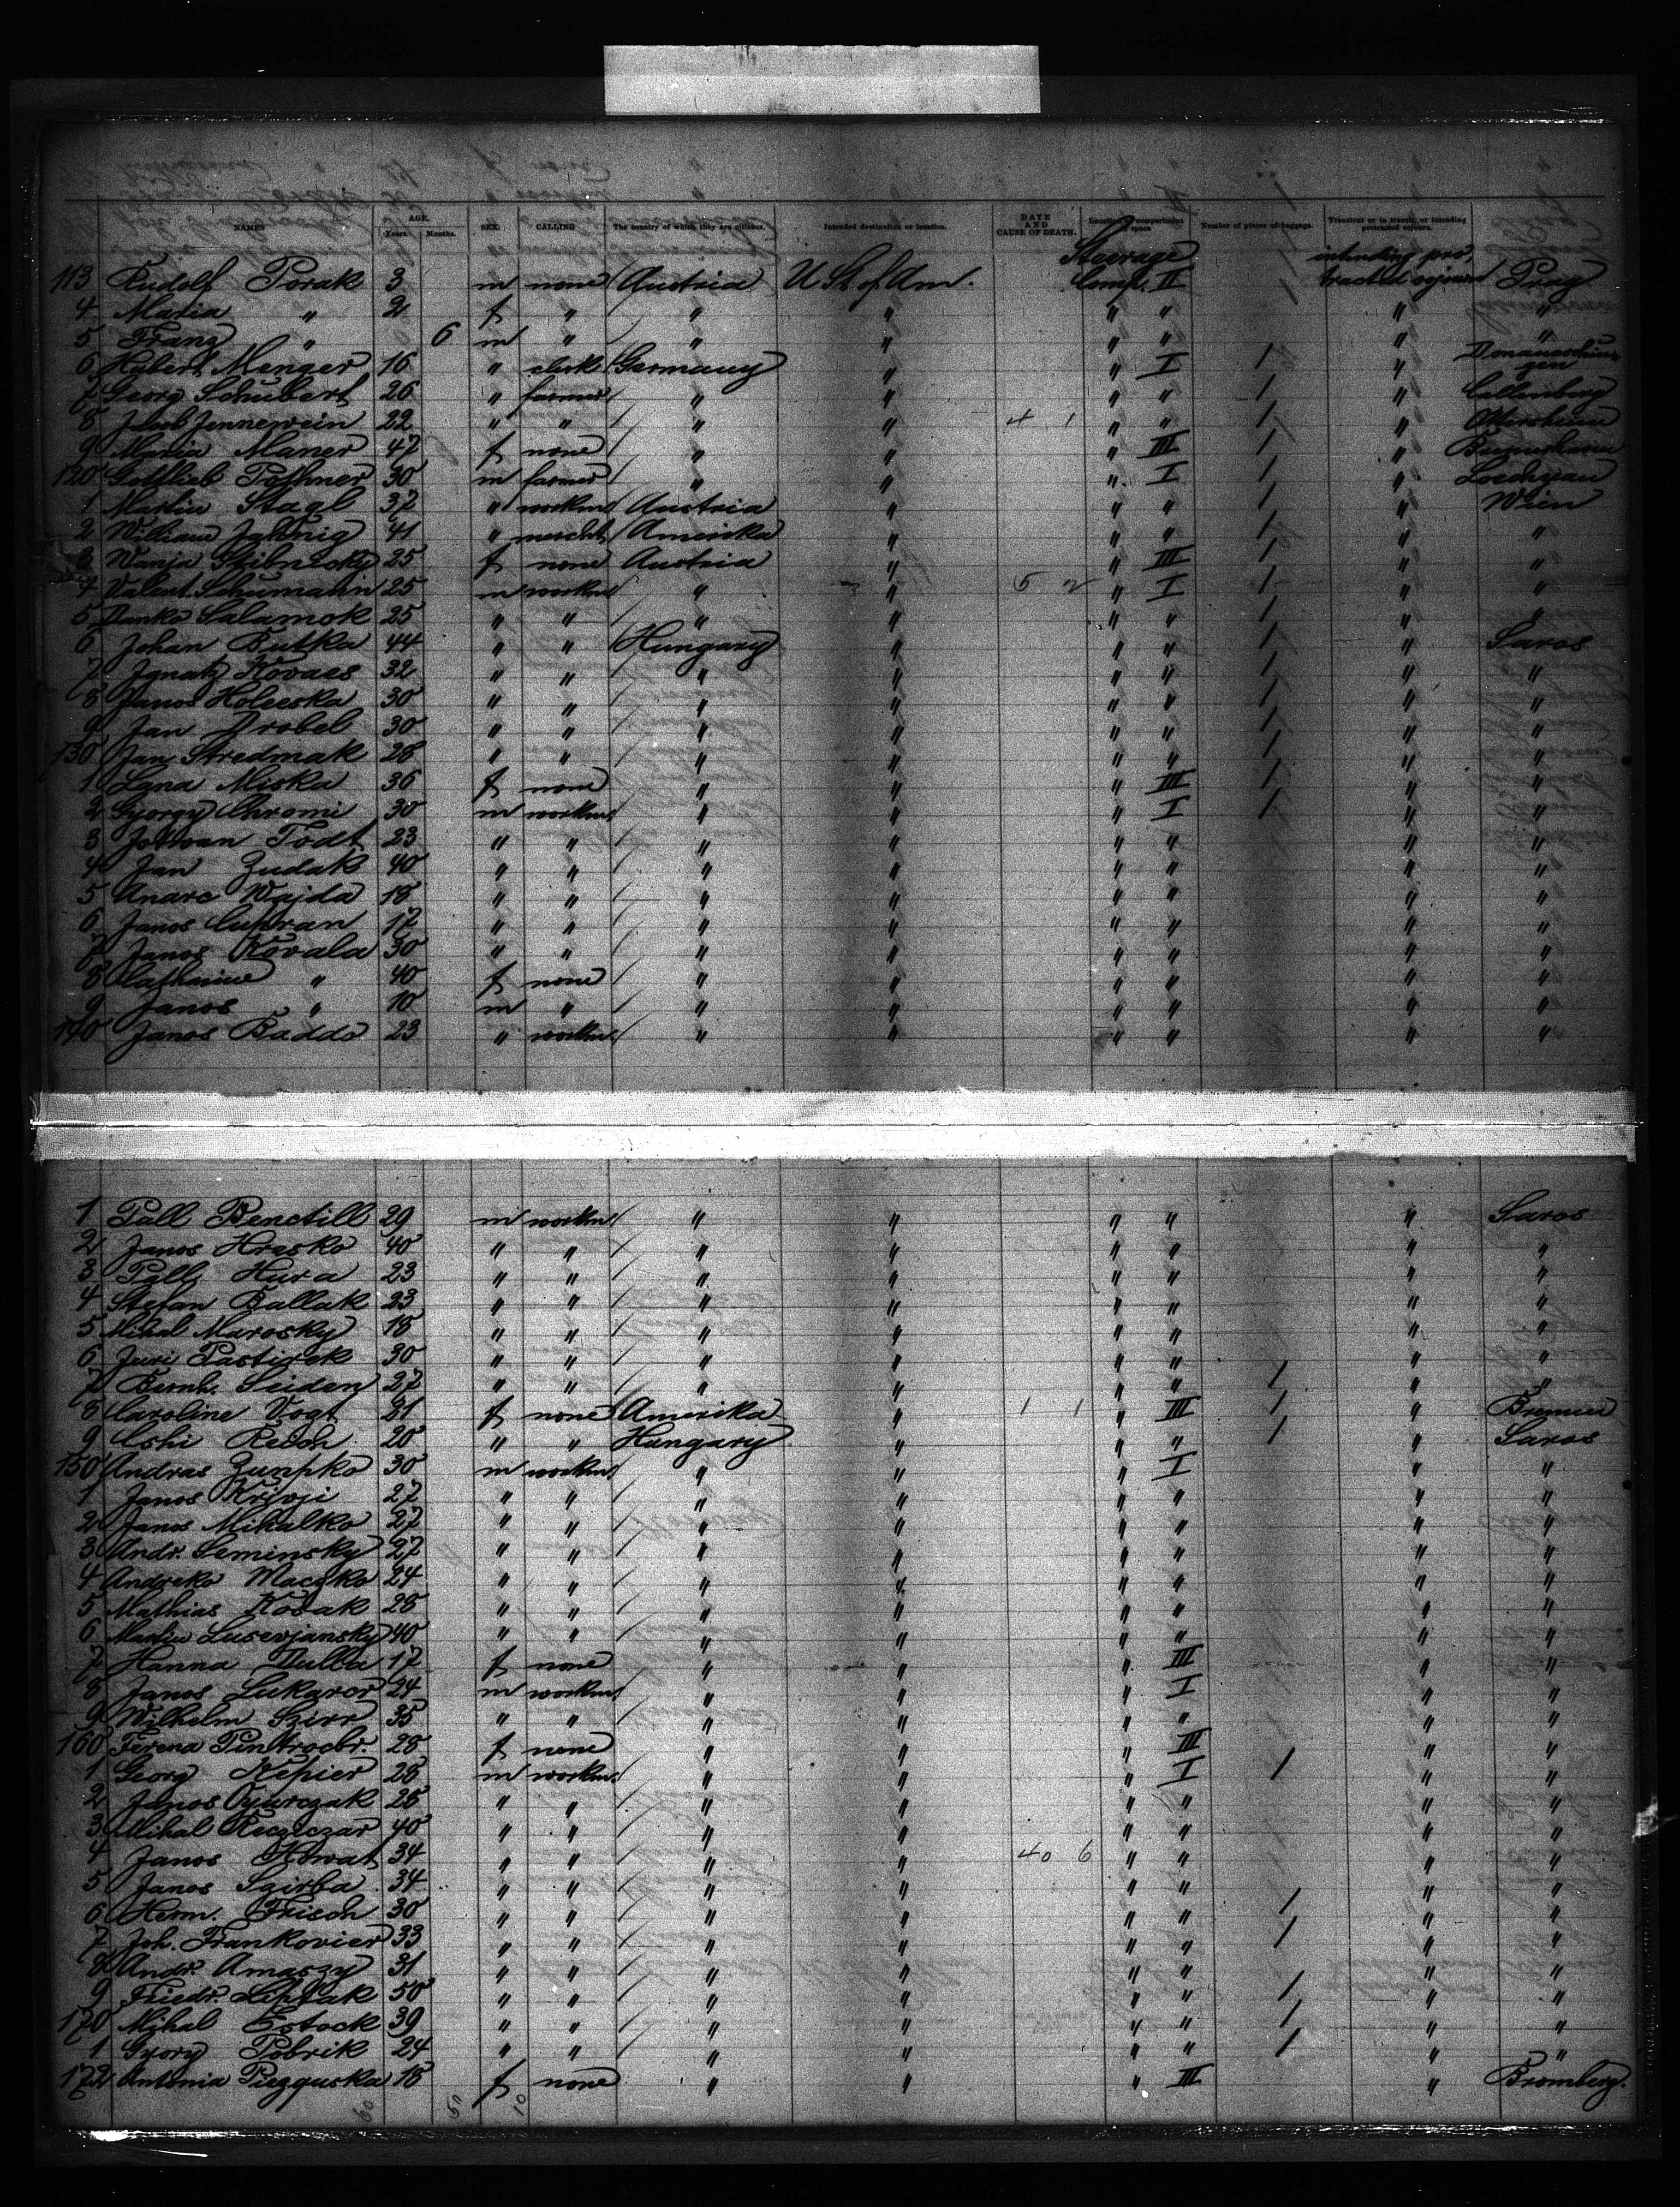 NAMES AGE. Years. Months. SEX. CALLING The country of which they are citizens. Intended destination or location. DATE AND CAUSE OF DEATH. Location of compartment or space Number of pieces of baggage. Transient or in transit, or intending protracted sojourn.
Steerage intending pro-
113 Rudolf Porak 3 m none Austria U St. of Am. Comp. II tracted sojourn Prag
4 Maria " 2 f " " " " " " "
5 Franz " 6 m " " " " " " "
6 Hubert Menger 16 " clerk Germany " " I 1 "
7 Georg Schubert 26 " farmer " " " " 1 " Callenberg
8 Jacob Jennewein 22 " " " " 4 1 " " 1 "
9 Maria Maner 47 f none " " " III 1 "
120 Gottlieb Pothner 30 m farmer " " " I 1 "
1 Martin Stagl 37 " workm. Austria " " " 1 " Wien
2 William Jahnig 41 " mercht. Amerika " " " 1 " "
3 Wanja Stibnicky 25 f none Austria " " III 1 " "
4 Valent. Schumann 25 m workm. " " 5 2 " I 1 " "
5 Danko Salamok 25 " " " " " " 1 " "
6 Johan Butka 44 " " Hungary " " " 1 " Saros
7 Ignatz Kovacs 32 " " " " " " 1 " "
8 Janos Holecska 30 " " " " " " 1 " "
9 Jan Drobel 30 " " " " " " 1 " "
130 Jan Stredmak 28 " " " " " " 1 " "
1 Lana Miska 36 f none " " " III 1 " "
2 Gyorgy Chromi 30 m workm. " " " I 1 " "
3 Todt 23 " " " " " " " "
4 Jan Zudak 40 " " " " " " " "
5 Anarc Wajda 18 " " " " " " " "
6 Janos Cupran 17 " " " " " " " "
7 Janos Kovala 30 " " " " " " " "
8 Catharine " 40 f none " " " " " "
9 Janos " 10 m " " " " " " "
140 Janos Baddo 23 " workm. " " " " " "
1 Pall Benctill 29 m workm. " " " " " Saros
2 Janos Hrasko 40 " " " " " " " "
3 Pall Hura 23 " " " " " " " "
4 Stefan Ballak 23 " " " " " " " "
5 Mihal Marosky 18 " " " " " " " "
6 Juri Pastirek 30 " " " " " " " "
7 Bernh. Seiden 27 " " " " " " 1 " "
8 Caroline Vogt 21 f none Amerika " 1 1 " III 1 " Bremen
9 Reich 20 " " Hungary " " " 1 " Saros
150 Andras Zumpko 30 m workm. " " " I " "
1 Janos Krivji 27 " " " " " " " "
2 Janos Mihalko 27 " " " " " " " "
3 Andr. Seminsky 27 " " " " " " " "
4 Andreko Maczko 24 " " " " " " " "
5 Mathias Kosak 28 " " " " " " " "
6 Martin Lusevjansky 40 " " " " " " " "
7 Hanna Dulla 17 f none " " " III " "
8 Janos 24 m workm. " " " I " "
9 Wilhelm Szirr 35 " " " " " " " "
160 Ferena 28 f none " " " III " "
1 Georg Kepier 28 m workm. " " " I 1 " "
2 Janos Gyurczak 28 " " " " " " " "
3 Mihal Recziczar 40 " " " " " " " "
4 Janos Howat 34 " " " " 40 6 " " " "
5 Janos Szirba 34 " " " " " " " "
6 Herm. Frisch 30 " " " " " " 1 " "
7 Joh. Frankovier 33 " " " " " " 1 " "
8 Andr. Amaszy 31 " " " " " " " "
9 Friedr. Liptak 50 " " " " " " 1 " "
170 Mihal Estock 39 " " " " " " 1 " "
1 Gyorg Pobrik 24 " " " " " " 1 " "
172 Antonia Piezguska 18 f none " " " III " Bromberg.
60 50 10